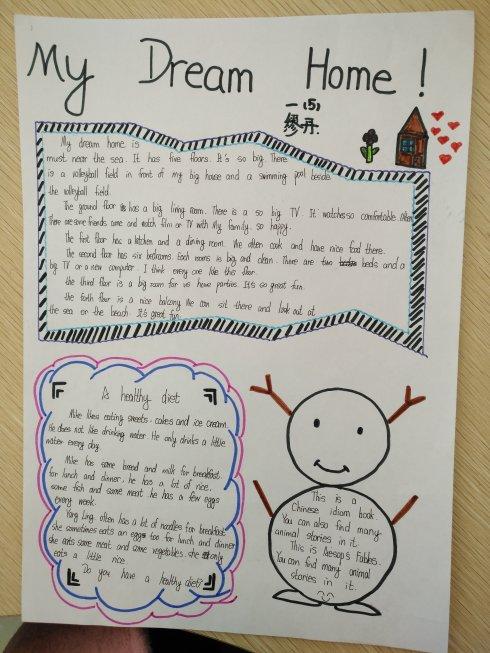 My Dream Home!
一(5)
缪丹
My dream home is
must near the sea. It has five floors. It's so big. There
is a volleyball field in front of my big house and a swimming pool beside
the volleyball field.
The ground floor has a big living room. There is a so big TV. It watches so comfortable. Often
There are some friends come and watch film or TV with My family. so happy.
The first floor has a kitchen and a dining room. We often cook and have nice food there.
The second floor has six bedrooms. Each rooms is big and clean. There are two beds and a
big TV or a new computer. I think every one like this floor.
the third floor is a big room for us home parties. It's so great fun.
the forth floor is a nice balcony. We can sit there and look out at
the sea or the beach. It's great fun.
A healthy diet
Mike likes eating sweets, cakes and ice cream.
He does not like drinking water. He only drinks a little
water every day.
Mike has some bread and milk for breakfast.
for lunch and dinner, he has a lot of rice,
some fish and some meat. he has a few eggs
every week.
Yang Ling often has a lot of noodles for breakfast
she sometimes eats an egg too for lunch and dinner
she eats some meat and some vegetables. she only
eats a little rice.
Do you have a healthy diet?
This is a
Chinese idiom book.
You can also find many
animal stories in it.
This is Aesop's Fables.
You can find many animal
stories in it.